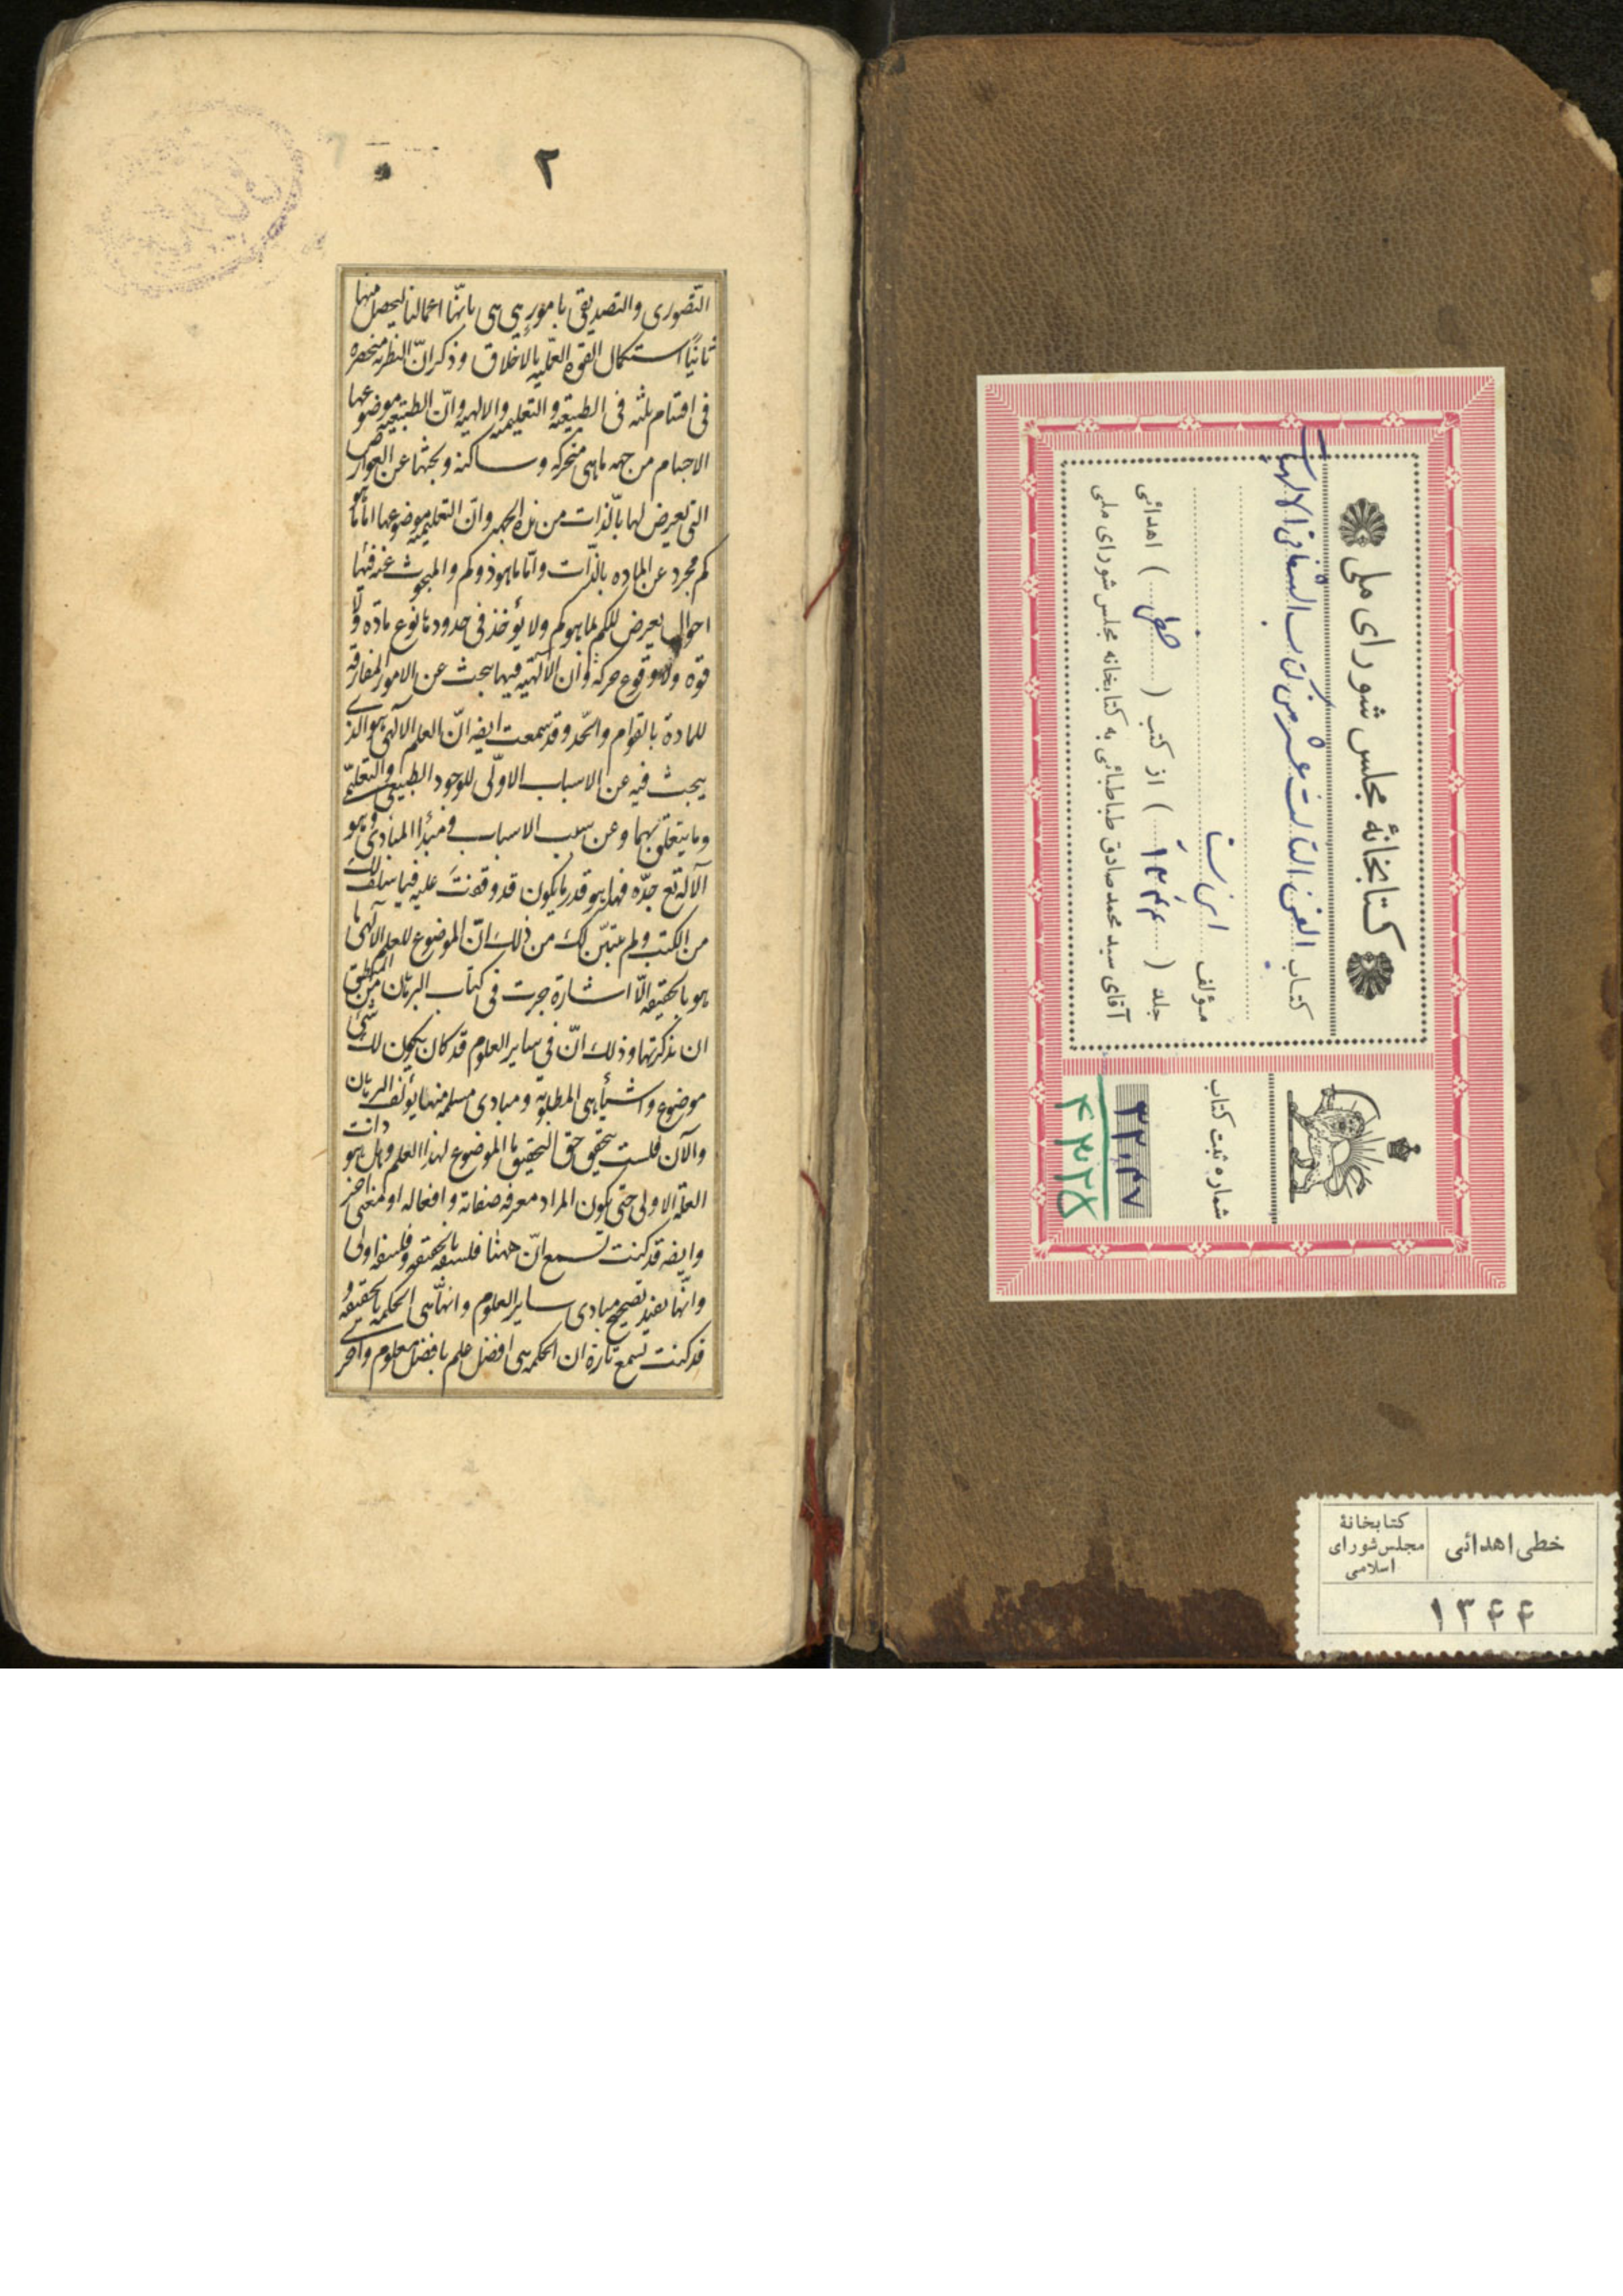 ۲
التّصوری والتصدیقی بامور هی هی بانّها اعمالنا لیحصل منها
ثانیًا استکمال القوه العمّلیه بالاخلاق و ذکر انّ النظریه منحصره
فی اقسام ثلثه فی الطبیعیه و التعلیمیه والالهیه وانّ الطبیعیه موضوعها
الاجسام من جهه ماهی متحرکه و ساکنه و بحثها عن العوارض
التی تعرض لها بالّذات من هذه الجهه وانّ التعلیمیه موضوعها امّا ما هو
کم مجرد عن الماده بالذّات وامّا ماهو ذو کم والمبحوث عنه فیها
احوال تعرض للکم بما هو کم ولا یؤخذ فی حدودها نوع مادّه ولا
قوه ولا وقوع حرکة وان الآلهیّه فیها یبحث عن الامور المفارقه
للمادة بالقوام والحّد و قد سمعت ایضه انّ العلم الآلهی هو الذی
یبحث فیه عن الاسباب الاوّلی للوجود الطبیعی والتعلیمی
وما یتعلّق بهما و عن سبب الاسباب و مبدأ المبادی و هو
الآله تع جدّه فهذا هو قدر ما یکون قد وقفت علیه فیما سلف لک
من الکتب ولم یتبیّن لک من ذلک انّ الموضوع للعلم الآلهی ما
هو بالحقیقه الّا اشارة جرت فی کتاب البرهان من المنطق
ان تذکرتها و ذلک انّ فی سایر العلوم قد کان یکون لک شی
موضوع و اشیأ هی المطلوبة و مبادی مسلمه منها یؤلف البرهان
والآن فلست تحقق حق التحقیق ما الموضوع لهذا العلم و هل هو ذات
العلّه الاولی حتی یکون المراد معرفه صفاته و افعاله او معنی اخر
وایضه قد کنت تسمع انّ ههنا فلسفه بالحقیقه و فلسفه اولی
وانّها تفید تصحیح مبادی سایر العلوم وانّها هی الحکمه بالحقیقه و
قد کنت تسمع تارة ان الحکمه هی افضل علم بافضل معلوم واخری
کتابخانهٔ مجلس شورای ملی
کتاب الفن الثالث عشر من کتاب الشفا فی الالهیات
مؤلف ابن سینا
جلد ( ۱۳۴۴ ) از کتب ( خطی ) اهدائی
آقای سید محمد صادق طباطبائی به کتابخانه مجلس شورای ملی
شماره ثبت کتاب
۳۳۰۴۷
۴۳۲۵
خطی اهدائی
کتابخانهٔ
مجلس شورای
اسلامی
۱۳۴۴